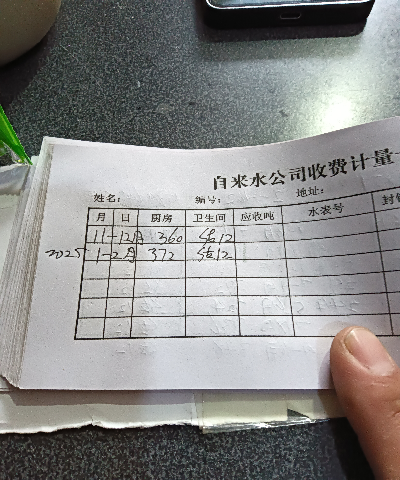 自来水公司收费计量
姓名: 编号: 地址:
月 日 厨房 卫生间 应收吨 水表号 封
11-12月 360 估12
2025 1-2月 372 估12